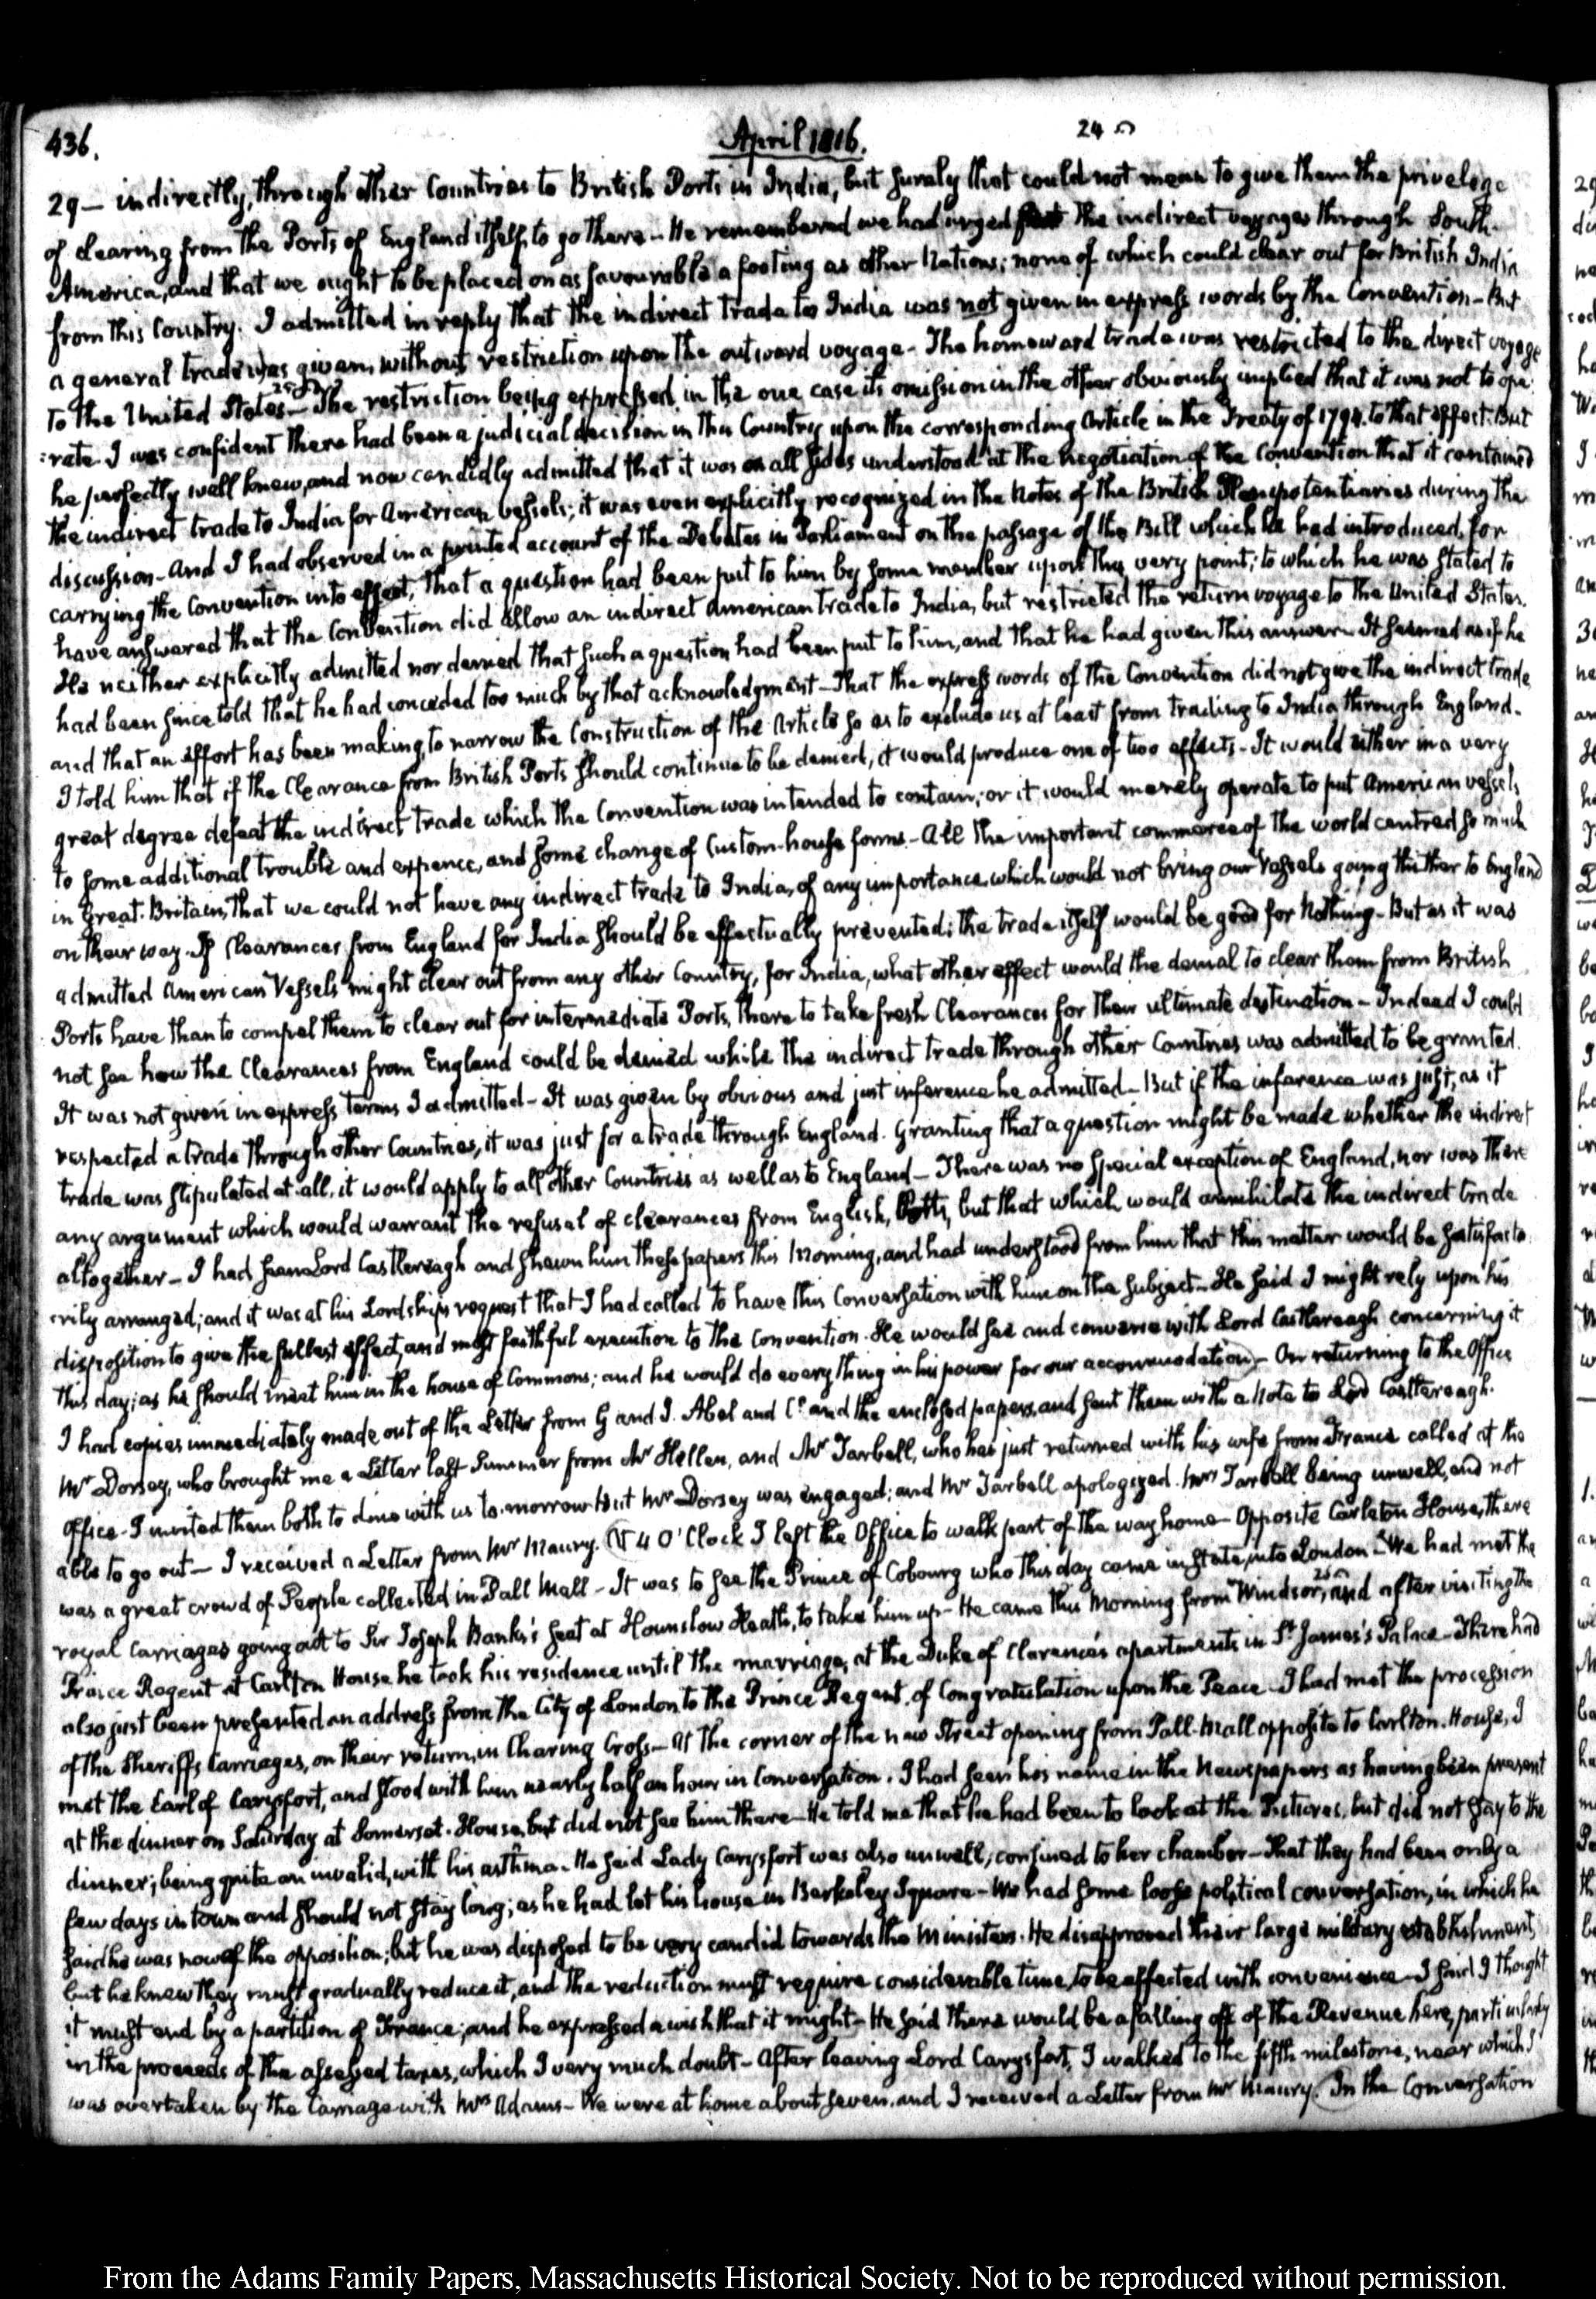 436.
April 1816.
24
29 — indirectly, through other Countries to British Ports in India, but surely that could not mean to give them the privelege
of clearing from the Ports of England itself, to go there — He remembered we had urged the indirect voyages through South-
America, and that we ought to be placed on as favourable a footing as other Nations; none of which could clear out for British India
from this Country. I admitted in reply that the indirect trade to India was not given in express words by the Convention — But
a general trade was given, without restriction upon the outward voyage — The homeward trade was restricted to the direct voyage
to the United States — The restriction being expressed in the one case its omission in the other obviously implied that it was not to ope
:rate. I was confident there had been a judicial decision in this Country upon the corresponding Article in the Treaty of 1794. to that effect. But
he perfectly well knew, and now candidly admitted that it was on all sides understood at the negotiation of the Convention that it contained
the indirect trade to India for American vessels; it was even explicitly recognized in the Notes of the British Plenipotentiaries during the
discussion — And I had observed in a printed account of the Debates in Parliament on the passage of the Bill which he had introduced, for
carrying the Convention into effect, that a question had been put to him by some member upon this very point; to which he was stated to
have answered that the Convention did allow an indirect American trade to India, but restricted the return voyage to the United States.
He neither explicitly admitted nor denied that such a question had been put to him, and that he had given this answer. It seemed as if he
had been since told that he had conceded too much by that acknowledgment — That the express words of the Convention did not give the indirect trade
and that an effort has been making, to narrow the Construction of the Article so as to exclude us at least from trading to India through England.
I told him that if the Clearance from British Ports should continue to be denied, it would produce one of two effects — It would either in a very
great degree defeat the indirect trade which the Convention was intended to contain; or it would merely operate to put American vessels
to some additional trouble and expence, and some change of Custom-house forms — All the important commerce of the world centred so much
in Great-Britain, that we could not have any indirect trade to India, of any importance, which would not bring our Vessels going thither to England
on their way. If Clearances from England for India should be effectually prevented; the trade itself would be good for Nothing — But as it was
admitted American Vessels might clear out from any other Country, for India, what other effect would the denial to clear them from British
Ports have than to compel them to clear out for intermediate Ports, there to take fresh Clearances for their ultimate destination — Indeed I could
not see how the Clearances from England could be denied while the indirect trade through other Countries was admitted to be granted.
It was not given in express terms I admitted — It was given by obvious and just inference he admitted — But if the inference was just, as it
respected a trade through other Countries, it was just for a trade through England. Granting that a question might be made whether the indirect
trade was stipulated at all, it would apply to all other Countries as well as to England — There was no special exception of England, nor was there
any argument which would warrant the refusal of clearances from English, Ports, but that which would annihilate the indirect trade
altogether — I had seen Lord Castlereagh and shewn him these papers this Morning, and had understood from him that this matter would be satisfacto
:rily arranged; and it was at his Lordship's request that I had called to have this Conversation with him on the subject — He said I might rely upon his
disposition to give the fullest effect, and most faithful execution to the Convention. He would see and converse with Lord Castlereagh concerning it
this day; as he should meet him in the house of Commons; and he would do every thing in his power for our accommodation — On returning to the Office
I had copies immediately made out of the Letter from G and I. Abel and Co. and the enclosed papers, and sent them with a Note to Lord Castlereagh.
Mr Dorsey, who brought me a Letter last Summer from Mr Hellen, and Mr Tarbell, who has just returned with his wife from France called at the
Office — I invited them both to dine with us to-morrow but Mr Dorsey was engaged; and Mr Tarbell apologized. Mrs Tarbell being unwell, and not
able to go out — I received a Letter from Mr Maury. At 4 O'Clock I left the Office to walk part of the way home — Opposite Carleton House, there
was a great crowd of People collected in Pall Mall — It was to see the Prince of Cobourg who this day came in State, into London — We had met the
royal Carriages going out to Sir Joseph Banks's seat at Hounslow Heath, to take him up — He came this Morning from Windsor, and after visiting the
Prince Regent at Carlton House he took his residence until the marriage, at the Duke of Clarence's apartments in St. James's Palace — There had
also just been presented an address from the City of London to the Prince Regent, of Congratulation upon the Peace — I had met the procession
of the Sheriffs Carriages, on their return, in Charing Cross — At the corner of the new Street opening from Pall-Mall opposite to Carlton-House, I
met the Earl of Carysfort, and stood with him nearly half an hour in Conversation. I had seen his name in the Newspapers as having been present
at the dinner on Saturday at Somerset-House, but did not see him there — He told me that he had been to look at the Pictures, but did not stay to the
dinner; being quite an invalid, with his asthma — He said Lady Carysfort was also unwell, confined to her chamber — That they had been only a
few days in town and should not stay long; as he had let his house in Berkeley Square — We had some loose political conversation, in which he
said he was now of the opposition; but he was disposed to be very candid towards the Ministers. He disapproved their large military establishment,
but he knew they must gradually reduce it, and the reduction must require considerable time, to be effected with convenience — I said I thought
it must end by a partition of France; and he expressed a wish that it might — He said there would be a falling off of the Revenue here, particularly
in the proceeds of the assessed taxes, which I very much doubt — After leaving Lord Carysfort, I walked to the fifth milestone, near which I
was overtaken by the Carriage with Mrs Adams — We were at home about seven, and I received a Letter from Mr Maury. In the Conversation
From the Adams Family Papers, Massachusetts Historical Society. Not to be reproduced without permission.